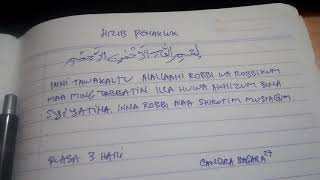 HIZIB PENAKLUK
بسم الله الرحمن الرحيم
INNI TAWAKALTU ALALLAAHI ROBBI WA ROBBIKUM
MAA MING DABBATIN ILLA HUWA AKHIZUM BINA
SYIYATIHA. INNA ROBBI MAA SHIROTIM MUSTAQIM.
PUASA 3 HARI
CANDRA SAGARA 27